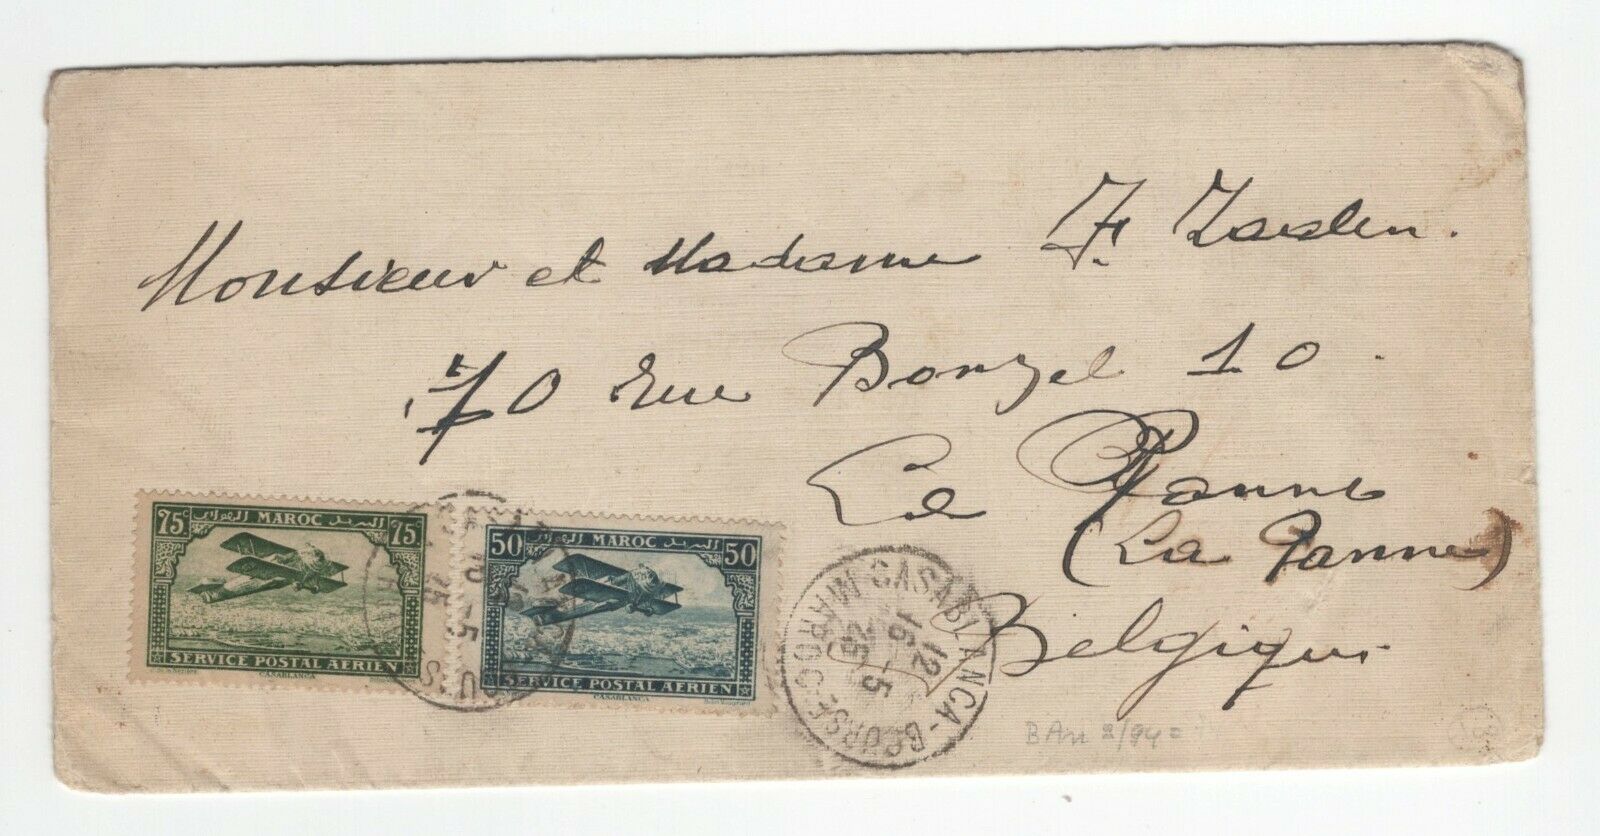 Monsieur et Madame F. Zaalen.
70 rue Bonzel 10.
La Panne
(La Panne)
Belgique
75c MAROC البريد الهوائي 75c
SERVICE POSTAL AÉRIEN
CASABLANCA
50 MAROC البريد الهوائي 50
SERVICE POSTAL AÉRIEN
CASABLANCA
CASABLANCA-BOURSE MAROC
12
16-5
25
BAn 2/94=